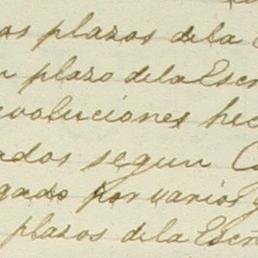 os plazos de la E
n plazo de la Escr
evoluciones hec
ados segun C
gado por varios y
plazos de la Escr